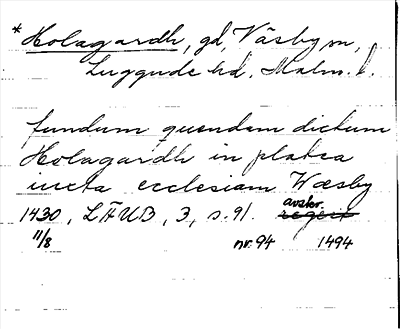 * Holagardh, gd, Väsby sn,
Luggude hd, Malm. l.
fundum quendam dictum
Holagardh in platea
iuxta ecclesiam Wæsby
1430, LÄUB, 3, s. 91. avskr.
11/8 nr. 94 1494